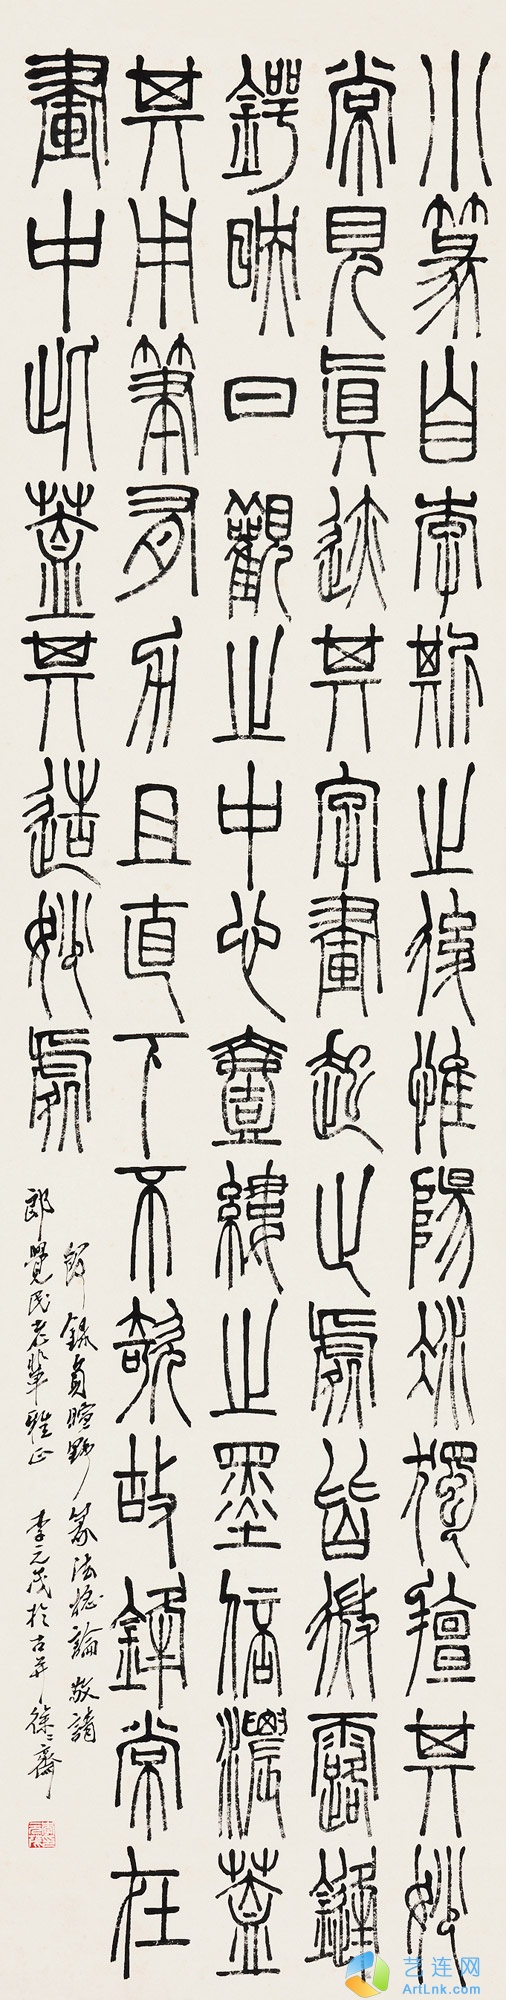 小篆自李斯之後惟陽冰獨擅其妙
常見眞迹其字畫起止處皆微露鋒
鍔映日觀之中心壹縷之墨倍濃蓋
其用筆有力且直下不欹故鋒常在
畫中此蓋其造妙處
節錄負暄野篆法總論敬請
郎覺民老輩雅正 李元茂於古并徐徐齋
艺连网
ArtLnk.com